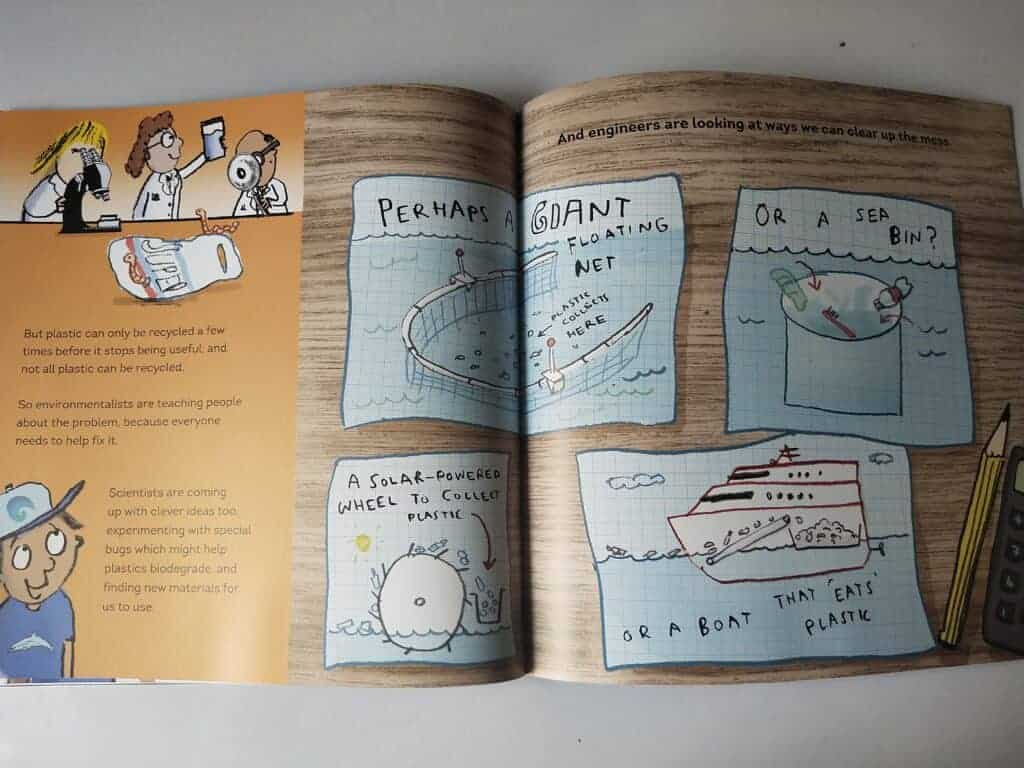 But plastic can only be recycled a few
times before it stops being useful, and
not all plastic can be recycled.
So environmentalists are teaching people
about the problem, because everyone
needs to help fix it.
Scientists are coming
up with clever ideas too,
experimenting with special
bugs which might help
plastics biodegrade, and
finding new materials for
us to use.
And engineers are looking at ways we can clear up the mess.
PERHAPS A GIANT
FLOATING
NET
PLASTIC
COLLECTS
HERE
OR A SEA
BIN?
A SOLAR-POWERED
WHEEL TO COLLECT
PLASTIC
OR A BOAT THAT 'EATS'
PLASTIC